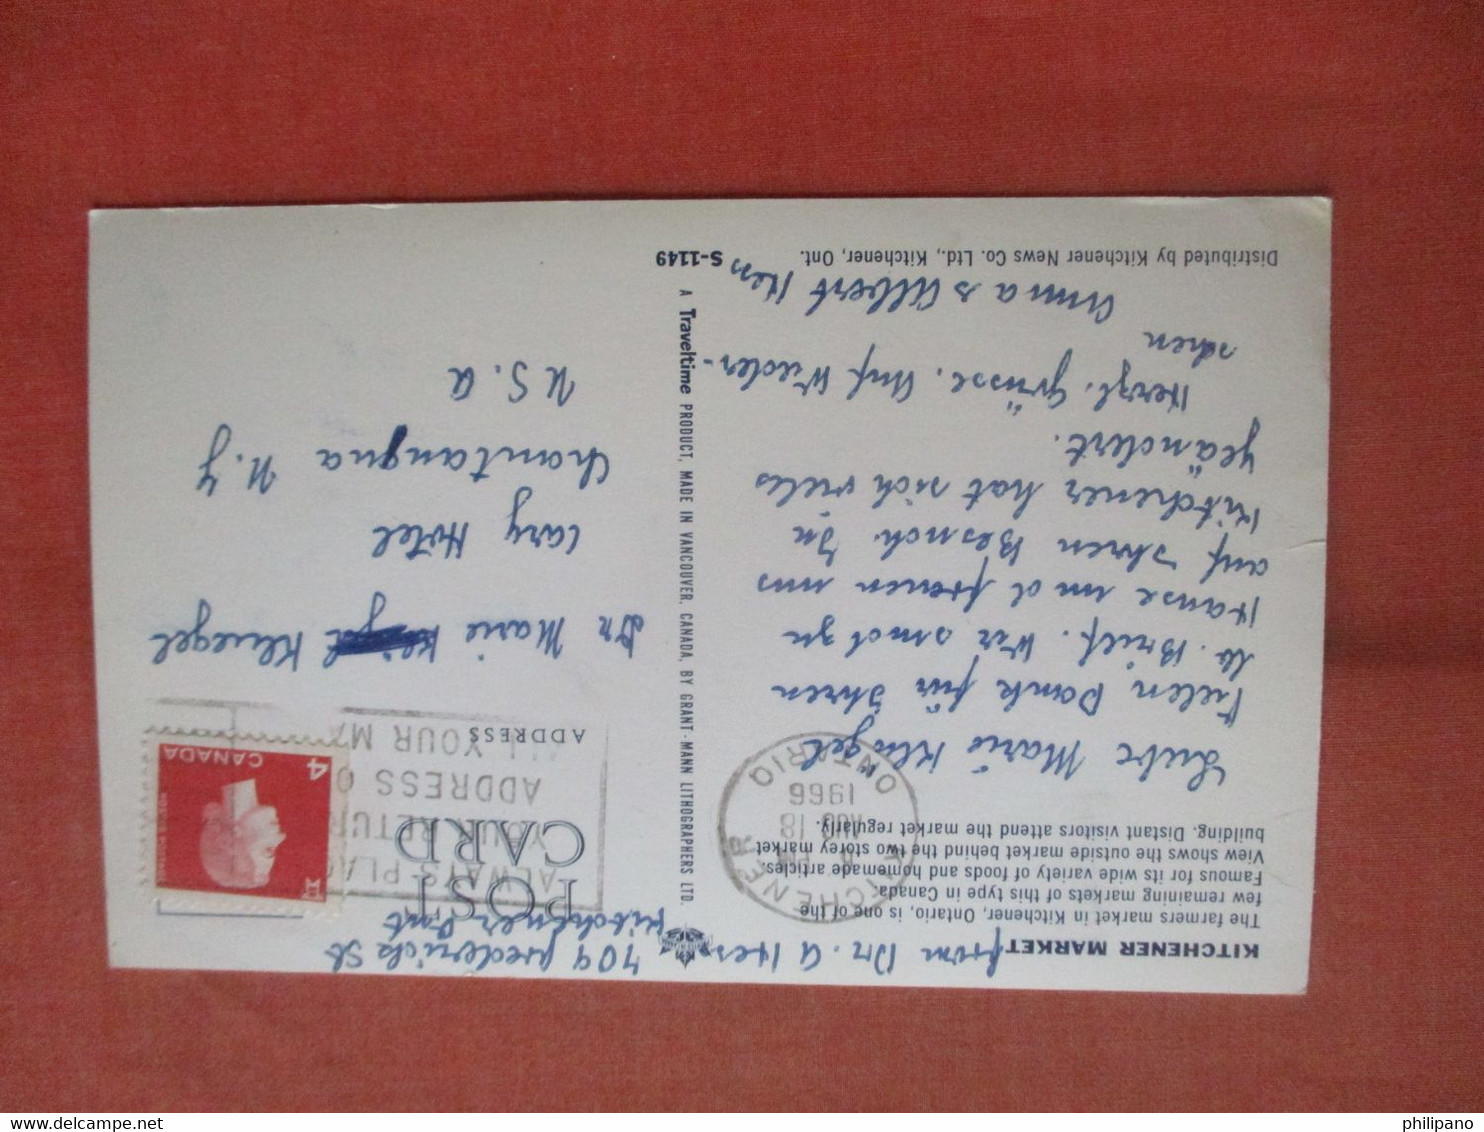 KITCHENER MARKET
The farmers market in Kitchener, Ontario, is one of the
few remaining markets of this type in Canada.
Famous for its wide variety of foods and homemade articles.
View shows the outside market behind the two storey market
building. Distant visitors attend the market regularly.
from Dr. A Hess 704 Frederick St
Kitchener Ont
KITCHENER
PM
AUG 18
1966
ONTARIO
Liebe Marie Kluegel
Vielen Dank für Ihren
lb. Brief. Wir sind zu
Hause und freuen uns
auf Ihren Besuch. In
Kitchener hat sich vieles
geändert.
Herzl. Grüsse. Auf Wieder-
sehen
Anna & Albert Hess
Distributed by Kitchener News Co. Ltd., Kitchener, Ont.
S-1149
A Traveltime PRODUCT, MADE IN VANCOUVER, CANADA, BY GRANT-MANN LITHOGRAPHERS LTD.
POST
CARD
ADDRESS
ALWAYS PLA
YOUR RETUR
ADDRESS O
YOUR MA
CANADA
4
Dr Marie Kluegel
Cary Hotel
Chautauqua N.Y
U.S.A
philipano